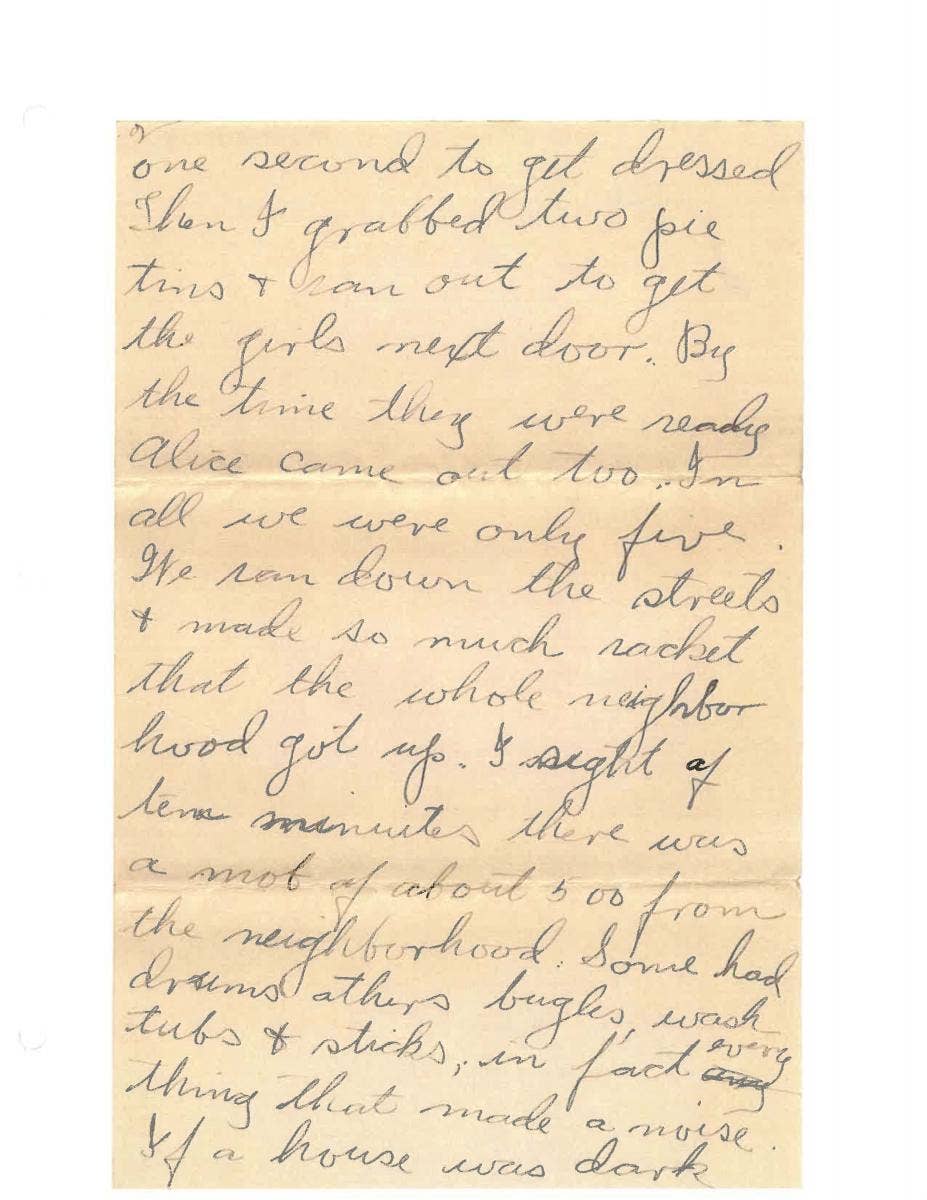 2
one second to get dressed
Then I grabbed two pie
tins & ran out to get
the girls next door. By
the time they were ready
Alice came out too. In
all we were only five.
We ran down the streets
& made so much racket
that the whole neighbor
hood got up. I sight of
ten minutes there was
a mob of about 500 from
the neighborhood. Some had
drums others bugles, wash
tubs & sticks, in fact every
any
thing that made a noise.
If a house was dark